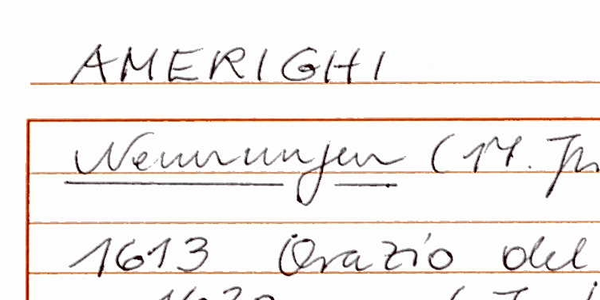 AMERIGHI
Nennungen (17. Jh
1613 Orazio del
1620